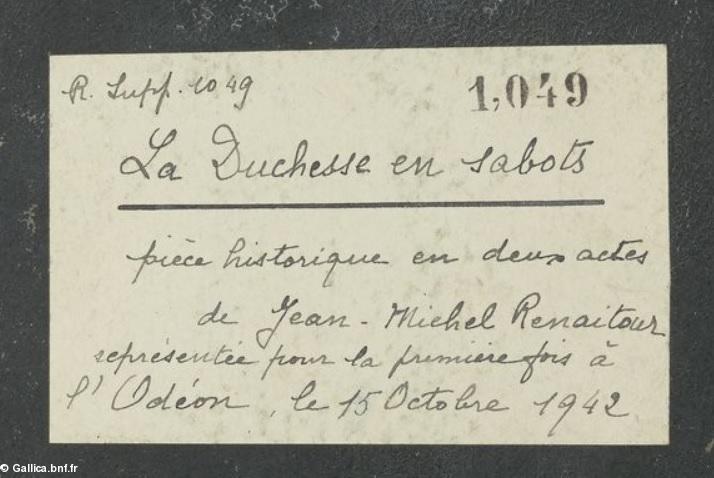 R. Supp. 1049
1,049
La Duchesse en sabots
pièce historique en deux actes
de Jean-Michel Renaitour
représentée pour la première fois à
l'Odéon, le 15 Octobre 1942
© Gallica.bnf.fr